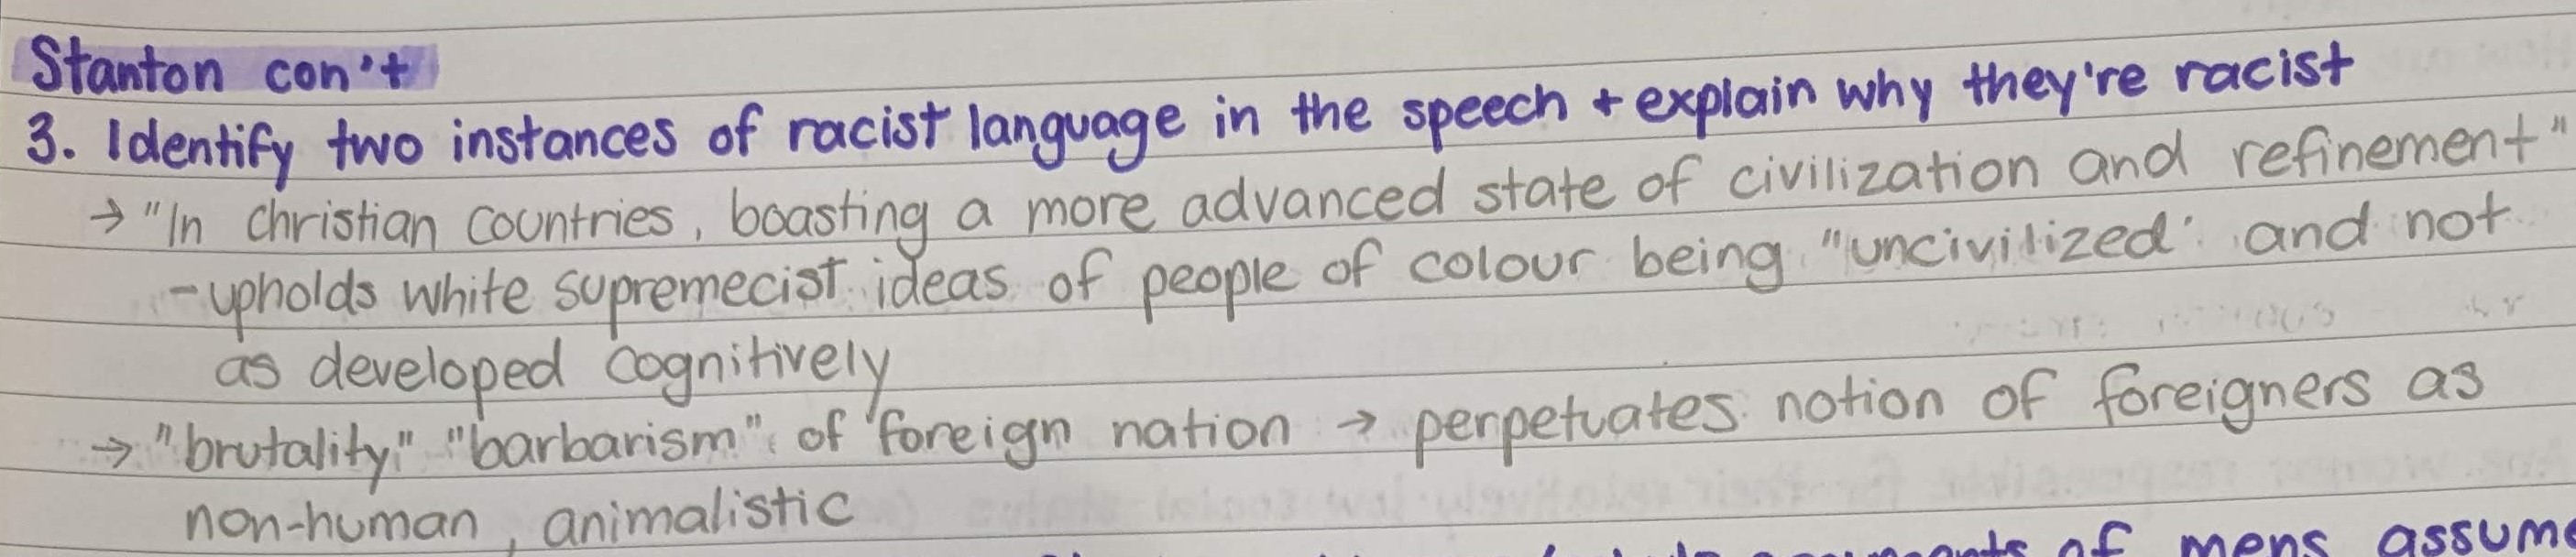 Stanton con't
3. Identify two instances of racist language in the speech + explain why they're racist
→ "In christian countries, boasting a more advanced state of civilization and refinement"
- upholds white supremecist ideas of people of colour being "uncivilized" and not
as developed cognitively
→ "brutality" "barbarism" of foreign nation → perpetuates notion of foreigners as
non-human, animalistic
of mens assum